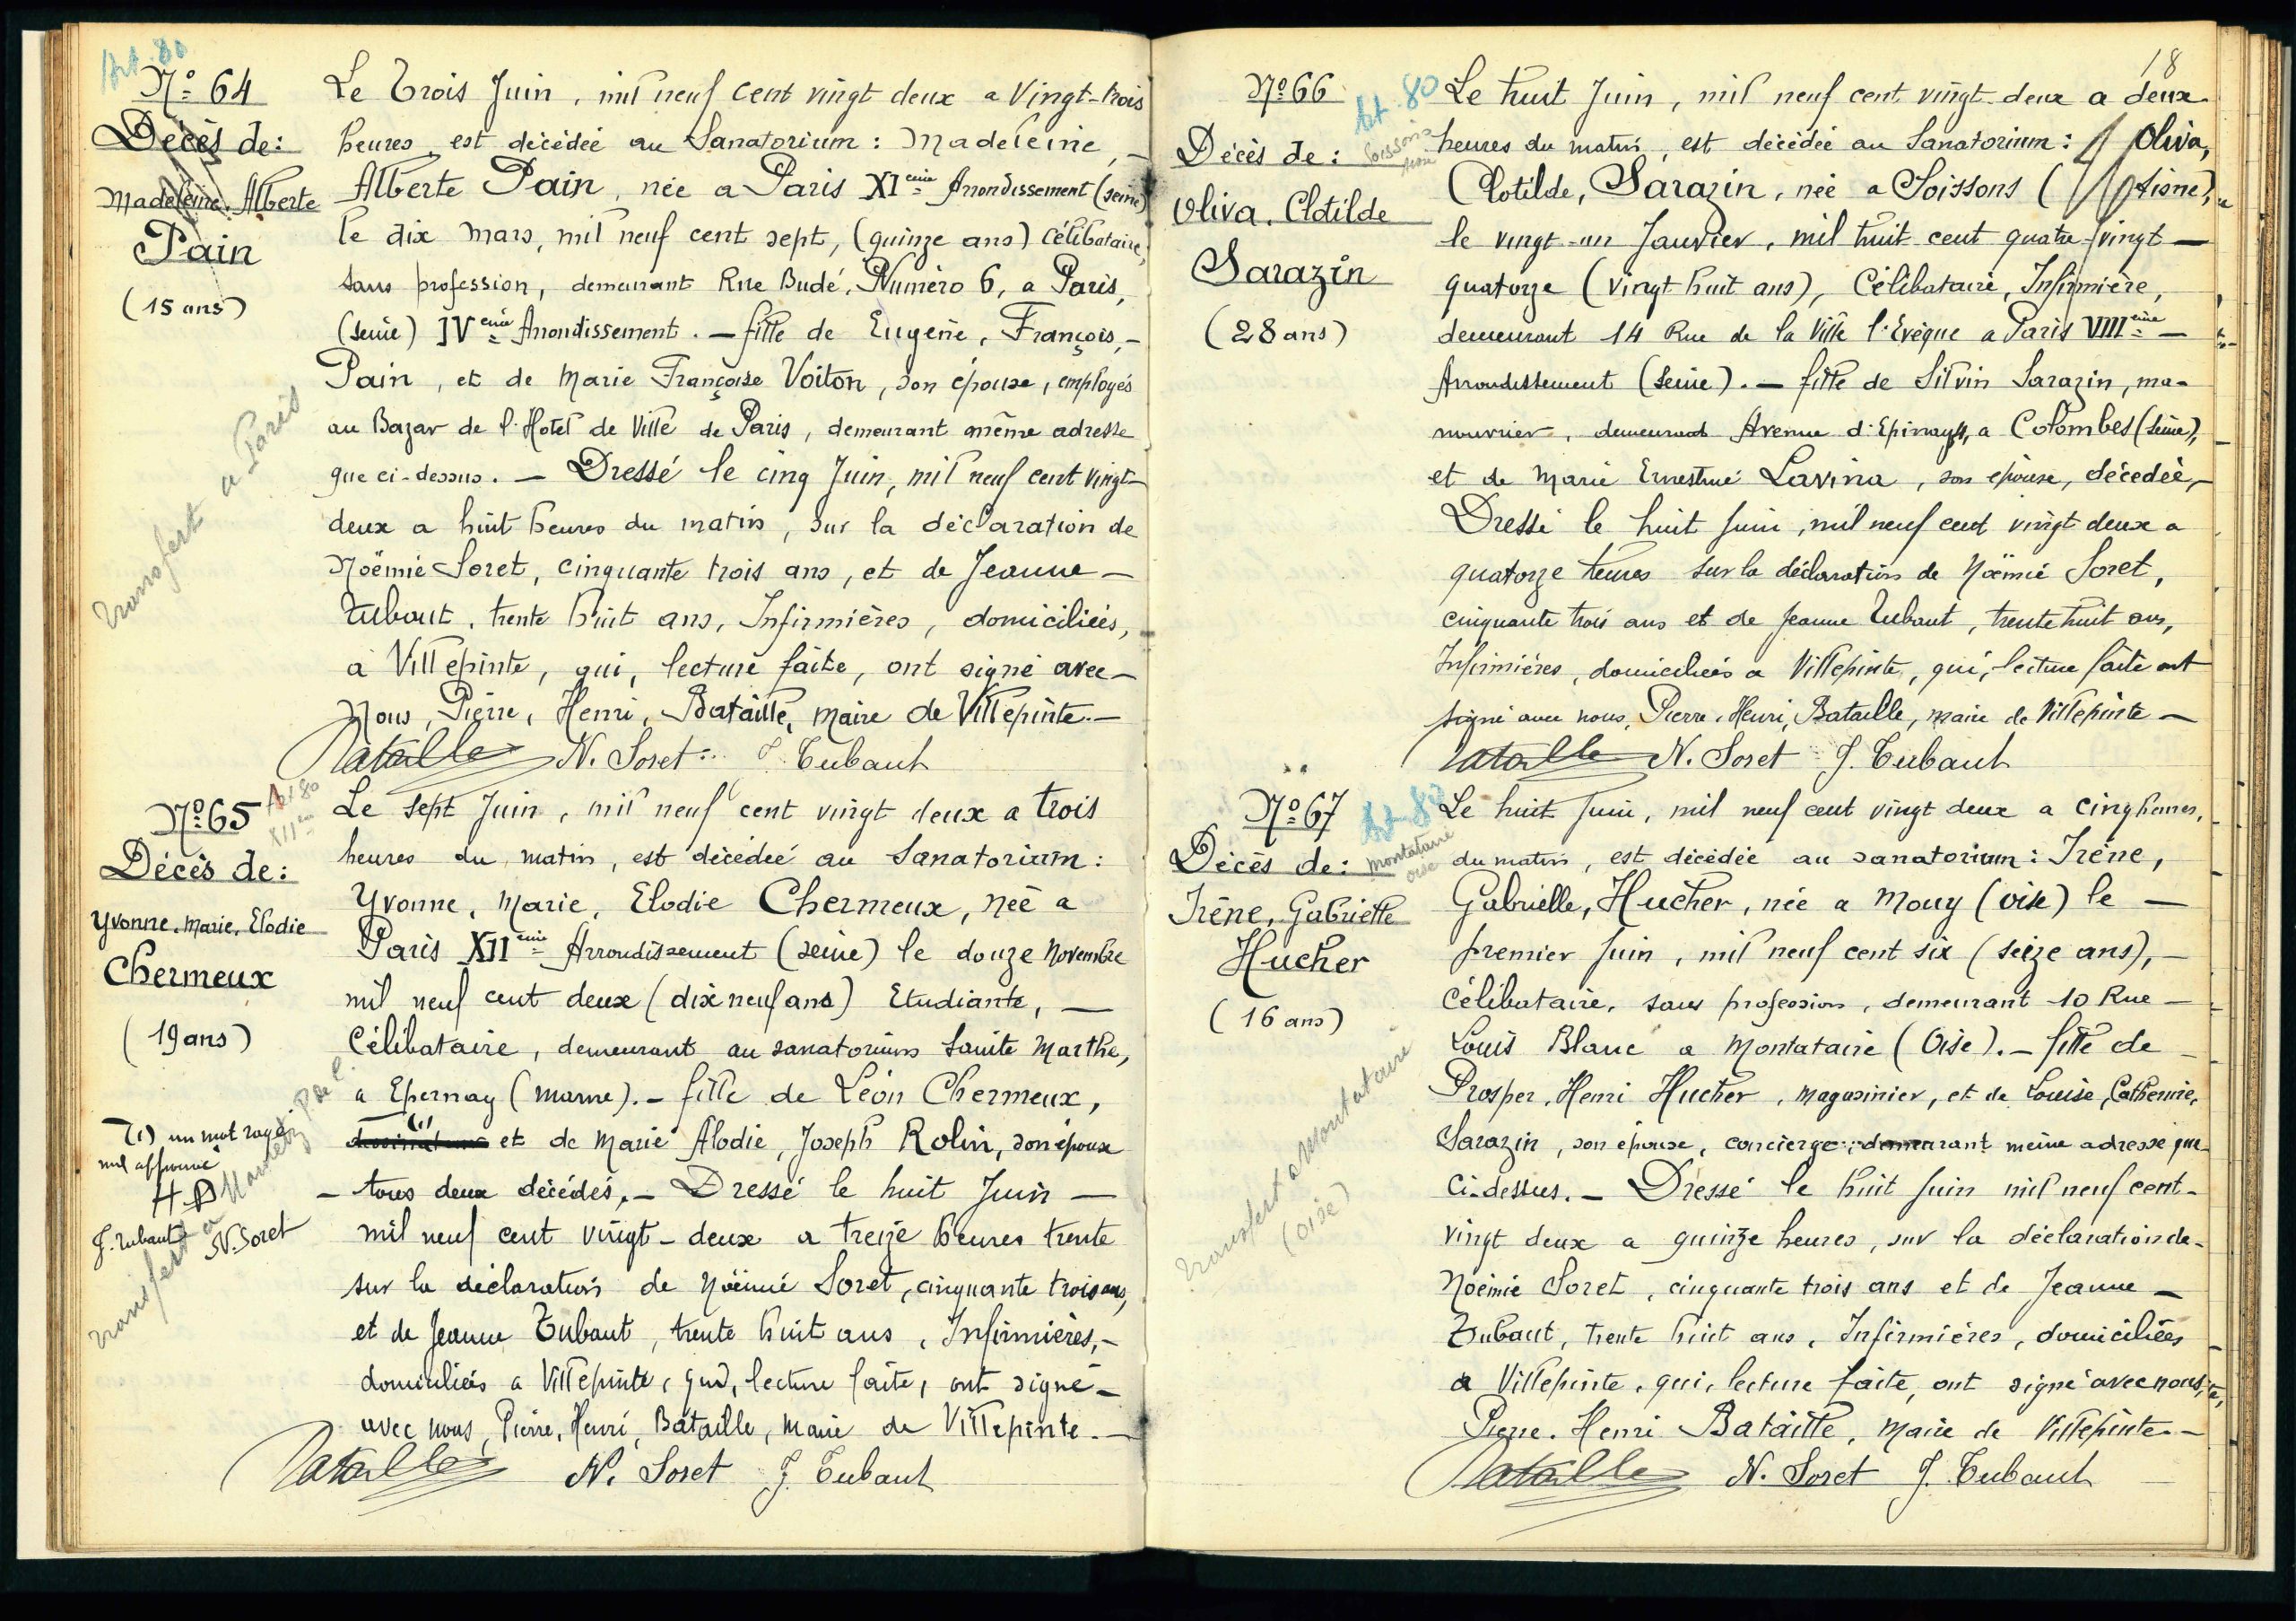 Art. 80
N° 64
Décès de:
Madeleine. Alberte
Pain
(15 ans)
transfert a Paris
Le Trois Juin, mil neuf cent vingt deux a Vingt-trois
heures, est décédée au Sanatorium: Madeleine, —
Alberte Pain, née a Paris XIeme Arrondissement (seine)
le dix mars, mil neuf cent sept, (quinze ans) célibataire,
sans profession, demeurant Rue Budé, Numéro 6, a Paris,
(seine) IVeme Arrondissement. — fille de Eugène, François, —
Pain, et de Marie Françoise Voiton, son épouse, employés
au Bazar de l'Hotel de Ville de Paris, demeurant même adresse
que ci-dessus. — Dressé le cinq Juin, mil neuf cent vingt-
deux a huit heures du matin, sur la déclaration de
Noëmie Soret, cinquante trois ans, et de Jeanne —
Tubaut, trente huit ans, Infirmières, domiciliées,
a Villepinte, qui, lecture faite, ont signé avec —
Nous, Pierre, Henri, Bataille, Maire de Villepinte. —
Bataille N. Soret J. Tubaut
N° 65
Art 80
XIIeme
Décès de:
Yvonne. Marie. Elodie
Chermeux
(19 ans)
(1) un mot rayé
nul approuvé
H B
J. Tubaut N. Soret
transfert a
Le sept Juin, mil neuf cent vingt deux a trois
heures du matin, est décédée au Sanatorium:
Yvonne, Marie, Elodie Chermeux, née a
Paris XIIeme Arrondissement (seine) le douze Novembre
mil neuf cent deux (dix neuf ans) Etudiante, —
Célibataire, demeurant au sanatorium Sainte Marthe,
a Epernay (Marne). — fille de Léon Chermeux,
(1) et de Marie Alodie, Joseph Rolin, son épouse
— tous deux décédés. — Dressé le huit Juin —
mil neuf cent vingt-deux a treize heures trente
sur la déclaration de Noëmie Soret, cinquante trois ans,
et de Jeanne Tubaut, trente huit ans, Infirmières, —
domiciliées a Villepinte, qui, lecture faite, ont signé —
avec nous, Pierre, Henri, Bataille, Maire de Villepinte. —
Bataille N. Soret J. Tubaut
18
N° 66
Art. 80
Soissons
Aisne
Décès de:
Oliva. Clotilde
Sarazin
(28 ans)
Le huit Juin, mil neuf cent vingt-deux a deux
heures du matin, est décédée au Sanatorium: Oliva,
Clotilde, Sarazin, née a Soissons (Aisne),
le vingt-un Janvier, mil huit cent quatre-vingt —
quatorze (vingt huit ans), Célibataire, Infirmière,
demeurant 14 Rue de la Ville l'Evêque a Paris VIIIeme —
Arrondissement (Seine). — fille de Silvin Sarazin, ma-
nouvrier, demeurant Avenue d'Epinay, a Colombes (Seine),
et de Marie Ernestine Lavina, son épouse, décédée, —
Dressé le huit Juin, mil neuf cent vingt deux a
quatorze heures sur la déclaration de Noëmie Soret,
cinquante trois ans et de Jeanne Tubaut, trente huit ans,
Infirmières, domiciliées a Villepinte, qui, lecture faite ont
signé avec nous, Pierre, Henri, Bataille, Maire de Villepinte —
Bataille N. Soret J. Tubaut
N° 67
Art. 80
Montataire
Oise
Décès de:
Irène, Gabrielle
Hucher
(16 ans)
transfert a Montataire
(Oise)
Le huit Juin, mil neuf cent vingt deux a cinq heures,
du matin, est décédée au sanatorium: Irène,
Gabrielle, Hucher, née a Mouy (oise) le —
premier Juin, mil neuf cent six (seize ans), —
Célibataire, sans profession, demeurant 10 Rue —
Louis Blanc a Montataire (Oise). — fille de —
Prosper, Henri Hucher, magasinier, et de Louise, Catherine,
Sarazin, son épouse, concierge, demeurant même adresse que
ci-dessus. — Dressé le huit Juin mil neuf cent-
vingt deux a quinze heures, sur la déclaration de-
Noémie Soret, cinquante trois ans et de Jeanne —
Tubaut, trente huit ans, Infirmières, domiciliées
a Villepinte, qui, lecture faite, ont signé avec nous,
Pierre, Henri Bataille, Maire de Villepinte —
Bataille N. Soret J. Tubaut